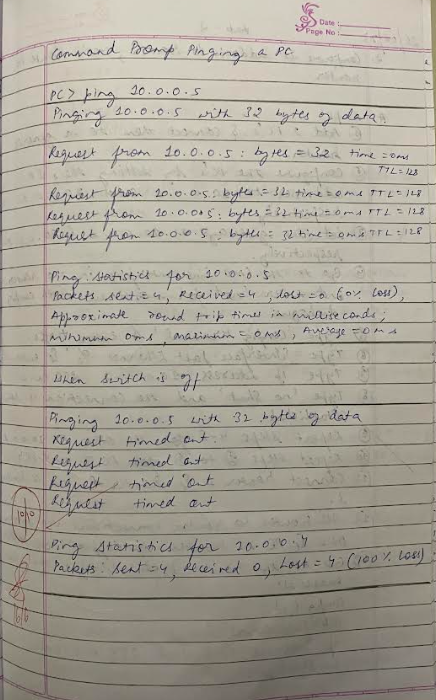 Date :
Page No :
Command Promp Pinging a PC
PC> ping 10.0.0.5
Pinging 10.0.0.5 with 32 bytes of data
Request from 10.0.0.5 : bytes = 32 time = 0ms
TTL = 128
Request from 10.0.0.5 : bytes = 32 time = 0ms TTL = 128
Request from 10.0.0.5 : bytes = 32 time = 0ms TTL = 128
Request from 10.0.0.5 : bytes = 32 time = 0ms TTL = 128
Ping statistics for 10.0.0.5
Packets sent = 4, Received = 4, lost = 0 (0% loss),
Approximate round trip times in milliseconds;
minimum 0ms, maximum = 0ms, Average = 0ms
When Switch is off
Pinging 10.0.0.5 with 32 bytes of data
Request timed out
Request timed out
Request timed out
Request timed out
10/10
Ping statistics for 10.0.0.4
Packets: sent = 4, received 0, Lost = 4 (100% loss)